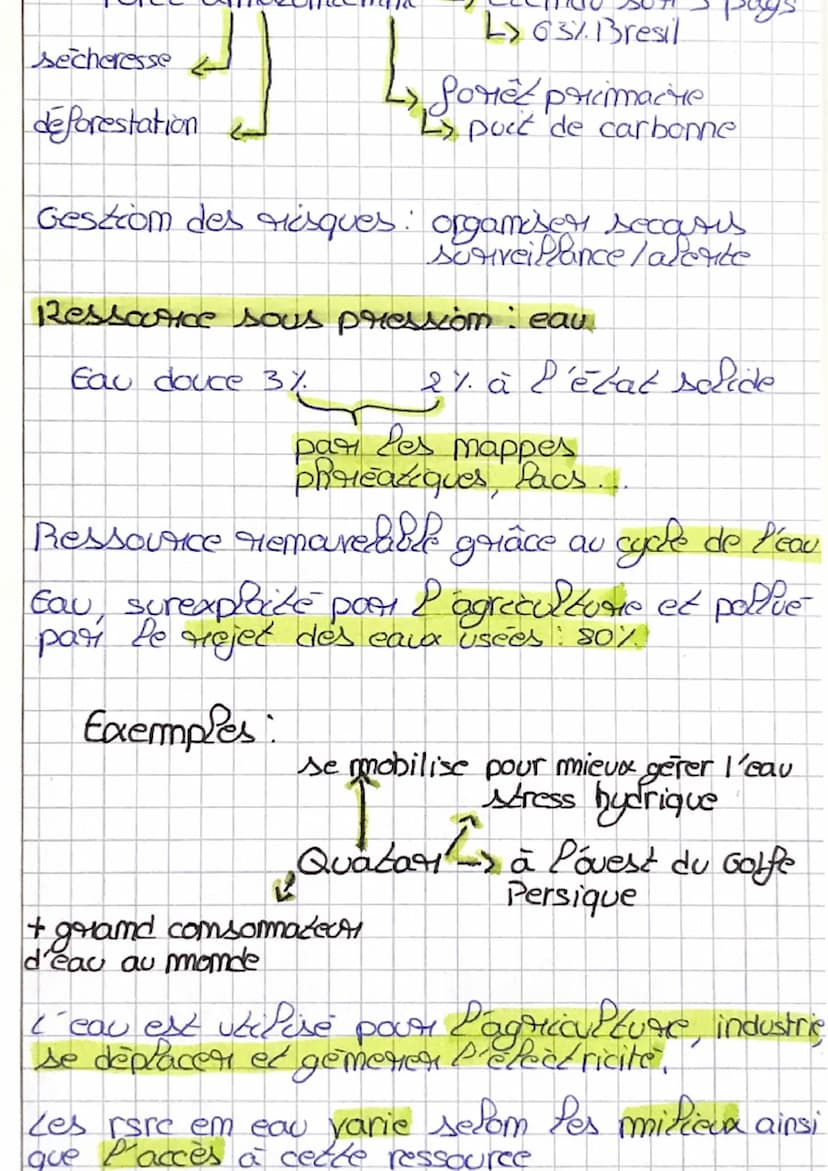 ↳ 63% Bresil
sècheresse
forrêt primaire
déforestation
↳ puit de carbonne
Gestion des risques : organiser secours
surveillance/alerte
Ressource sous pression : eau
Eau douce 3% 2% à l'état solide
par les nappes
phréatiques, lacs...
Ressource renouvelable grâce au cycle de l'eau
Eau, surexploité par l'agriculture et pollué
par le rejet des eaux usées : 80%
Exemples :
se mobilise pour mieux gérer l'eau
stress hydrique
Quatar → à l'ouest du Golfe
Persique
+ grand consommateur
d'eau au monde
L'eau est utilisé pour l'agriculture, industrie,
se déplacer et génerer l'électricité.
Les rsrc en eau varie selon les milieux ainsi
que l'accès à cette ressource